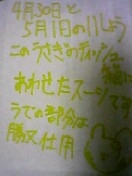 4月30日と
5月1日のいしょう
このうさぎのティッシュ
あわせたスーツです
うでの部分は
勝又仕用